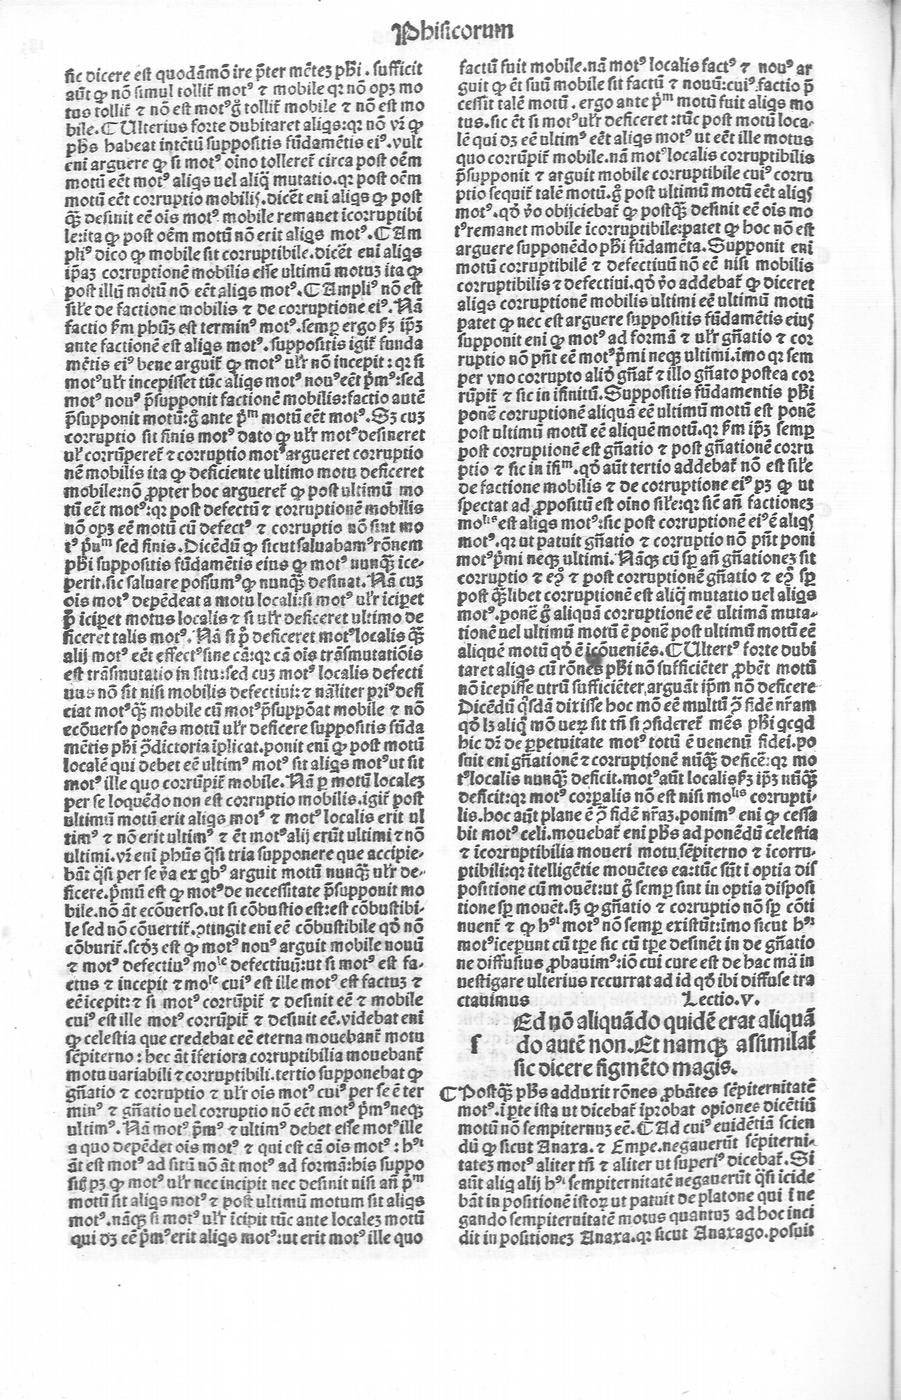 Phisicorum
sic dicere est quodāmō ire p̄ter mētez pħi. sufficit
aūt ꝙ nō simul tollit̄ motꝰ ⁊ mobile qꝛ nō opꝫ mo
tus tollit̄ ⁊ nō est motꝰ g̊ tollit̄ mobile ⁊ nō est mo
bile. ¶ Ulterius forte dubitaret aliqs: qꝛ nō vr̄ ꝙ
pħs habeat intētū suppositis fūdamētis eiꝰ. vult
eni arguere ꝙ si motꝰ oīno tolleret̄ circa post oēm
motū eēt motꝰ aliqs uel aliq̄ mutatio. qꝛ post oēm
motū eēt corruptio mobilis. dicēt eni aliqs ꝙ post
qꝫ̄ desinit eē oīs motꝰ mobile remanet īcorruptibi
le: ita ꝙ post oēm motū nō erit aliqs motꝰ. ¶ Am
pliꝰ dico ꝙ mobile sit corruptibile. dicēt eni aliqs
ip̄aꝫ corruptionē mobilis esse ultimū motuꝫ ita ꝙ
post illū motū nō eēt aliqs motꝰ. ¶ Ampliꝰ nō est
sil̄e de factione mobilis ⁊ de corruptione eiꝰ. Nā
factio ẜm phūꝫ est terminꝰ motꝰ. semꝑ ergo ẜꝫ ip̄ꝫ
ante factionē est aliqs motꝰ. suppositis igit̄ funda
mētis eiꝰ bene arguit̄ ꝙ motꝰ ul̄r nō incepit: qꝛ si
motꝰ ul̄r incepisset tūc aliqs motꝰ nouꝰ eēt p̄mꝰ: sed
motꝰ nouꝰ p̄supponit factionē mobilis: factio autē
p̄supponit motū: g̊ ante p̄mᵐ motū eēt motꝰ. Sꝫ cuꝫ
corruptio sit finis motꝰ dato ꝙ ul̄r motꝰ desineret
ul̄ corrūperet̄ ⁊ corruptio motꝰ argueret corruptio
nē mobilis ita ꝙ deficiente ultimo motu deficeret
mobile: nō ꝓpter hoc argueret̄ ꝙ post ultimū mo
tū eēt motꝰ: qꝛ post defectū ⁊ corruptionē mobilis
nō opꝫ eē motū cū defectꝰ ⁊ corruptio nō sint mo
tꝰ p̄nᵐ sed finis. Dicēdū ꝙ sicut saluabamꝰ rōnem
pħi suppositis fūdamētis eius ꝙ motꝰ nunqꝫ̄ ice-
perit. sic saluare possumꝰ ꝙ nunqꝫ̄ desinat. Nā cuꝫ
oīs motꝰ depēdeat a motu locali: si motꝰ ul̄r iciꝑet
p̄ iciꝑet motus localis ⁊ si ul̄r deficeret ultimo de
ficeret talis motꝰ. Nā si p̄ deficeret motꝰ localis qꝫ̄
alij motꝰ eēt effectꝰ sine cā: qꝛ cā oīs trāsmutatiōis
est trāsmutatio in situ: sed cuꝫ motꝰ localis defecti
uus nō sit nisi mobilis defectiui: ⁊ nāliter priꝰ defi
ciat motꝰ qꝫ̄ mobile cū motꝰ p̄suppōat mobile ⁊ nō
ecōuerso ponēs motū ul̄r deficere suppositis fūda
mētis pħi ꝯdictoria iplicat. ponit eni ꝙ post motū
localē qui debet eē ultimꝰ motꝰ sit aliqs motꝰ ut sit
motꝰ ille quo corrūpit̄ mobile. Nā ꝑ motū localeꝫ
per se loquēdo non est corruptio mobilis. igit̄ post
ultimū motū erit aliqs motꝰ ⁊ motꝰ localis erit ul
timꝰ ⁊ nō erit ultimꝰ ⁊ ēt motꝰ alij erūt ultimi ⁊ nō
ultimi. vr̄ eni phūs q̄si tria supponere que accipie-
bāt q̄si per se ꝟa ex qbꝰ arguit motū nunqꝫ̄ ul̄r de-
ficere. p̄mū est ꝙ motꝰ de necessitate p̄supponit mo
bile. nō āt ecōuerso. ut si cōbustio est: est cōbustibi-
le sed nō cōuertit̄. ꝯtingit eni eē cōbustibile qđ nō
cōburit̄. scdꝫ est ꝙ motꝰ nouꝰ arguit mobile nouū
⁊ motꝰ defectiuꝰ moˡᵉ defectiuū: ut si motꝰ est fa-
ctus ⁊ incepit ⁊ moˡᵉ cuiꝰ est ille motꝰ est factuꝫ ⁊
eē icepit: ⁊ si motꝰ corrūpit̄ ⁊ desinit eē ⁊ mobile
cuiꝰ est ille motꝰ corrūpit̄ ⁊ desinit eē. videbat eni
ꝙ celestia que credebat eē eterna mouebant̄ motu
sēpiterno: hec āt īferiora corruptibilia mouebant̄
motu variabili ⁊ corruptibili. tertio supponebat ꝙ
gn̄atio ⁊ corruptio ⁊ ul̄r oīs motꝰ cuiꝰ per se ē ter
minꝰ ⁊ gn̄atio uel corruptio nō eēt motꝰ p̄mꝰ neqꝫ
ultimꝰ. Nā motꝰ p̄mꝰ ⁊ ultimꝰ debet esse motꝰ ille
a quo depēdet oīs motꝰ ⁊ qui est cā oīs motꝰ: hꝰᵗ
āt est motꝰ ad sitū nō āt motꝰ ad formā: his suppo
sitꝭ pꝫ ꝙ motꝰ ul̄r nec incipit nec desinit nisi añ p̄ᵐ
motū sit aliqs motꝰ ⁊ post ultimū motum sit aliqs
motꝰ. nāqꝫ si motꝰ ul̄r īcipit tūc ante localeꝫ motū
qui dꝫ eē p̄mꝰ erit aliqs motꝰ: ut erit motꝰ ille quo
factū fuit mobile. nā motꝰ localis factꝰ ⁊ nouꝰ ar
guit ꝙ ēt suū mobile sit factū ⁊ nouū: cuiꝰ factio p̄
cessit talē motū. ergo ante p̄ᵐ motū fuit aliqs mo
tus. sic ēt si motꝰ ul̄r deficeret: tūc post motū loca-
lē qui dꝫ eē ultimꝰ eēt aliqs motꝰ ut eēt ille motus
quo corrūpit̄ mobile. nā motꝰ localis corruptibilis
p̄supponit ⁊ arguit mobile corruptibile cuiꝰ corru
ptio sequit̄ talē motū. g̊ post ultimū motū eēt aliqs
motꝰ. qđ ꝟo obijciebat̄ ꝙ postqꝫ̄ desinit eē oīs mo
tꝰ remanet mobile icorruptibile: patet ꝙ hoc nō est
arguere supponēdo pħi fūdamēta. Supponit eni
motū corruptibilē ⁊ defectiuū nō eē nisi mobilis
corruptibilis ⁊ defectiui. qđ ꝟo addebat̄ ꝙ diceret
aliqs corruptionē mobilis ultimi eē ultimū motū
patet ꝙ nec est arguere suppositis fūdamētis eius
supponit eni ꝙ motꝰ ad formā ⁊ ul̄r gn̄atio ⁊ cor
ruptio nō pn̄t eē motꝰ p̄mi neqꝫ ultimi. imo qꝛ sem
per vno corrupto aliđ gn̄at̄ ⁊ illo gn̄ato postea cor
rūpit̄ ⁊ sic in ifinitū. Suppositis fūdamentis pħi
ponē corruptionē aliquā eē ultimū motū est ponē
post ultimū motū eē aliquē motū. qꝛ ẜm ip̄ꝫ semꝑ
post corruptionē est gn̄atio ⁊ post gn̄ationē corru
ptio ⁊ sic in ifiᵐ. qđ aūt tertio addebat̄ nō est sil̄e
de factione mobilis ⁊ de corruptione eiꝰ pꝫ ꝙ ut
spectat ad ꝓpositū est oīno sil̄e: qꝛ sic añ factioneꝫ
moˡⁱˢ est aliqs motꝰ: sic post corruptionē eiꝰ ē aliqs
motꝰ. qꝛ ut patuit gn̄atio ⁊ corruptio nō pn̄t poni
motꝰ p̄mi neqꝫ ultimi. Nāqꝫ cū sꝑ añ gn̄ationeꝫ sit
corruptio ⁊ eꝯ̊ ⁊ post corruptionē gn̄atio ⁊ eꝯ̊ sꝑ
post qꝫ̄libet corruptionē est aliq̄ mutatio uel aliqs
motꝰ. ponē g̊ aliquā corruptionē eē ultimā muta-
tionē uel ultimū motū ē ponē post ultimū motū eē
aliquē motū qđ ē icōueniēs. ¶ Ultertꝰ forte dubi
taret aliqs cū rōnes pħi nō sufficiēter ꝓbēt motū
nō icepisse utrū sufficiēter arguāt ip̄m nō deficere
Dicēdū q̄sdā dixisse hoc mō eē multū ꝯ̄ fidē nr̄am
qđ lꝫ aliq̄ mō ueꝝ sit tn̄ si ꝯsideret̄ mēs pħi qcqđ
hic dr̄ de ꝑpetuitate motꝰ totū ē uenenū fidei. po
suit eni gn̄ationē ⁊ corruptionē nūqꝫ̄ deficē: qꝛ mo
tꝰ localis nunqꝫ̄ deficit. motꝰ aūt localis ẜꝫ ip̄ꝫ nūqꝫ̄
deficit: qꝛ motꝰ corꝑalis nō est nisi moˡⁱˢ corrupti-
lis. hoc aūt plane ē ꝯ̄ fidē nr̄aꝫ. ponimꝰ eni ꝙ cessa
bit motꝰ celi. mouebat̄ eni pħs ad ponēdū celestia
⁊ īcorruptibilia moueri motu sēpiterno ⁊ īcorru-
ptibili: qꝛ ītelligētie mouētes ea: tūc sūt ī optia dis
positione cū mouēt: ut g̊ semꝑ sint in optia disposi
tione sꝑ mouēt. sꝫ ꝙ gn̄atio ⁊ corruptio nō sꝑ cōti
nuent̄ ⁊ ꝙ hꝰᵗ motꝰ nō semꝑ existūt: imo sicut hꝰᵗ
motꝰ iceperunt cū tꝑe sic cū tꝑe desinēt in de gn̄atio
ne diffusius ꝓbauimꝰ: iō cui cure est de hac mā in
uestigare ulterius recurrat ad id qđ ibi diffuse tra
ctauimus Lectio. v.
Ed nō aliquādo quidē erat aliquā
ſ do autē non. Et namqꝫ assimilat̄
sic dicere figmēto magis.
¶ Postqꝫ̄ pħs adduxit rōnes ꝓbātes sēpiternitatē
motꝰ. i ꝑte ista ut dicebat̄ iꝓbat opiones dicētiū
motū nō sempiternuꝫ eē. ¶ Ad cuiꝰ euidētiā scien
dū ꝙ sicut Anaxa. ⁊ Empe. negauerūt sēpiterni-
tateꝫ motꝰ aliter tn̄ ⁊ aliter ut superiꝰ dicebat̄. Si
aūt aliq alij hꝰⁱ sempiternitatē negauerūt q̄si icide
bāt in positionē istoꝝ ut patuit de platone qui ī ne
gando sempiternitatē motus quantuꝫ ad hoc inci
dit in positioneꝫ Anaxa. qꝛ sicut Anaxago. posuit